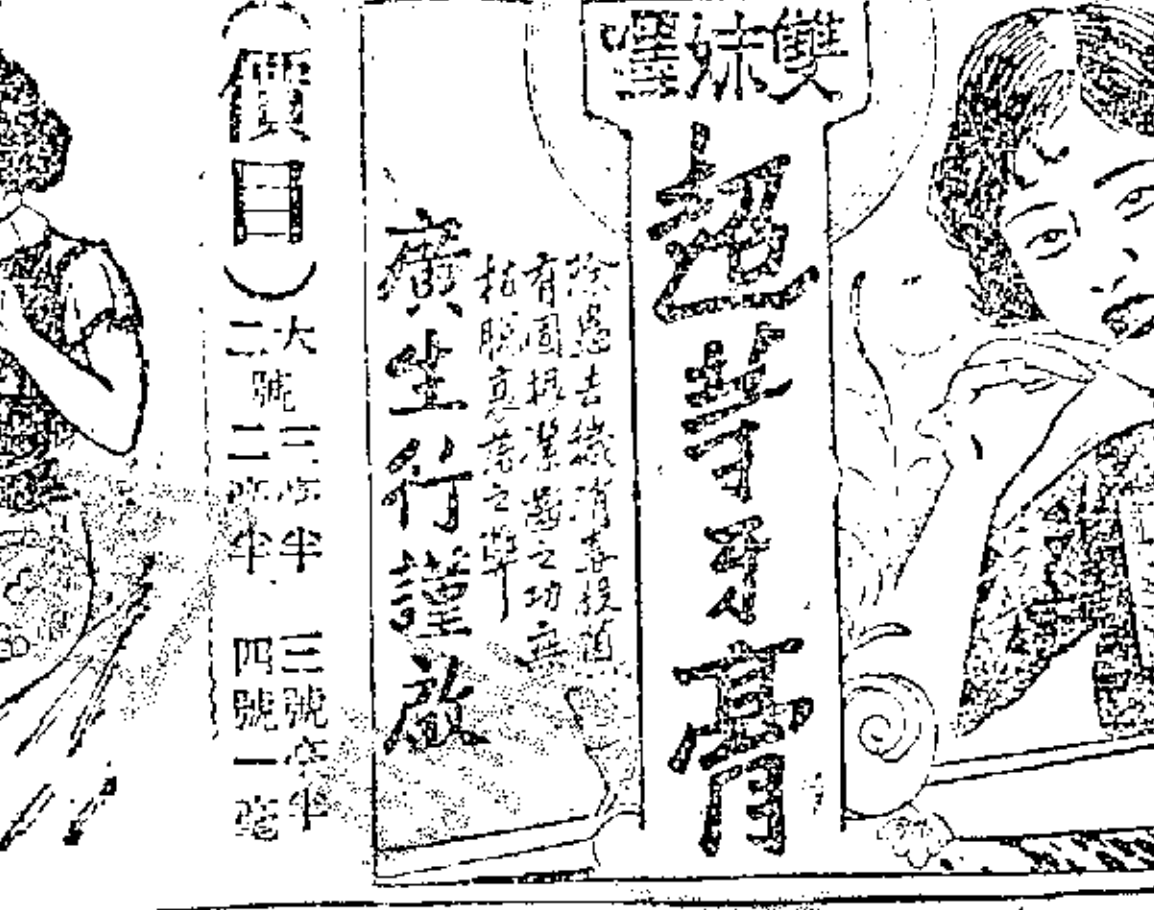 雙妹嚜
超等牙膏
除惡去穢消毒殺菌
有固根潔齒之功無
枯脫衰落之弊
廣生行謹啟
（價目）
大號三毫半 三號毫半
二號二毫半 四號一毫